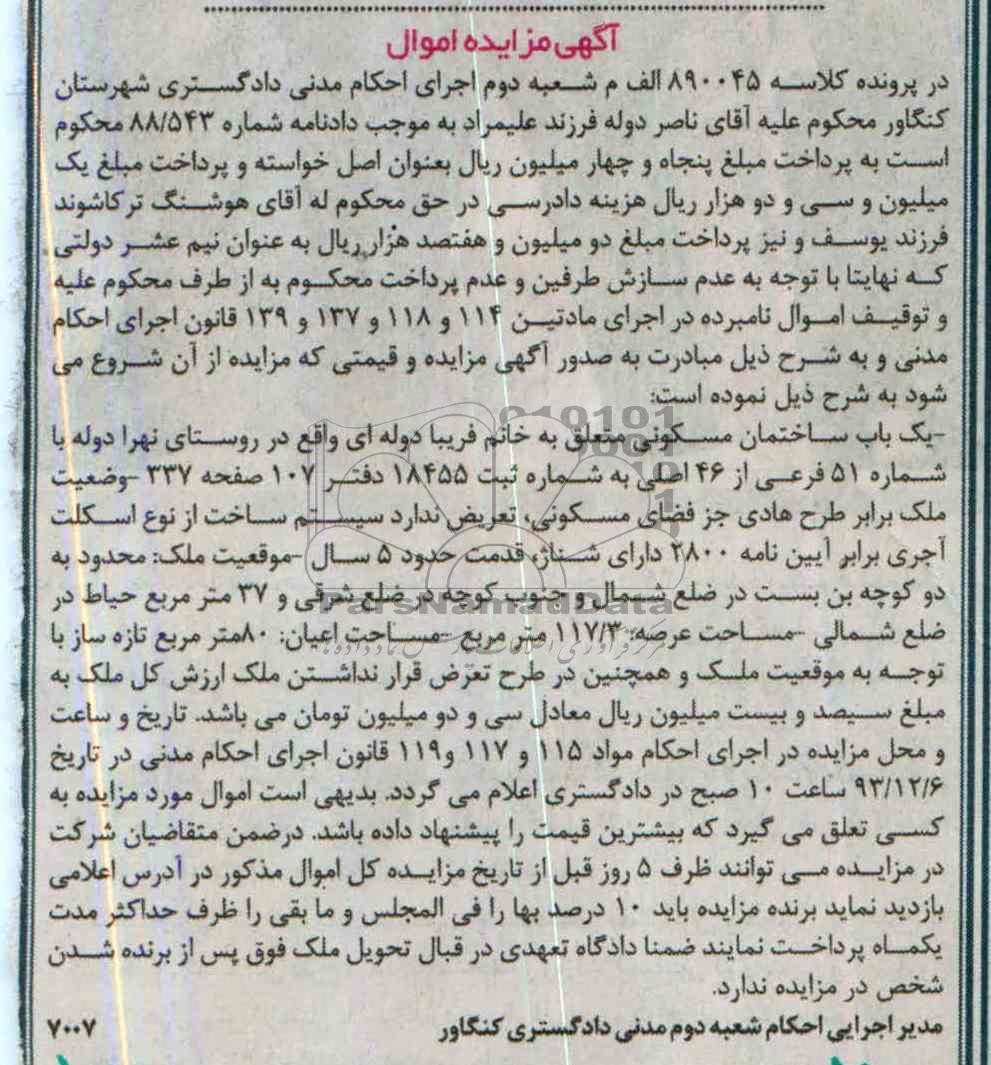 آگهی مزایده اموال
در پرونده کلاسه ۸۹۰۰۴۵ الف م شعبه دوم اجرای احکام مدنی دادگستری شهرستان
کنگاور محکوم علیه آقای ناصر دوله فرزند علیمراد به موجب دادنامه شماره ۸۸/۵۴۳ محکوم
است به پرداخت مبلغ پنجاه و چهار میلیون ریال بعنوان اصل خواسته و پرداخت مبلغ یک
میلیون و سی و دو هزار ریال هزینه دادرسی در حق محکوم له آقای هوشنگ ترکاشوند
فرزند یوسف و نیز پرداخت مبلغ دو میلیون و هفتصد هزار ریال به عنوان نیم عشر دولتی
که نهایتا با توجه به عدم سازش طرفین و عدم پرداخت محکوم به از طرف محکوم علیه
و توقیف اموال نامبرده در اجرای مادتین ۱۱۴ و ۱۱۸ و ۱۳۷ و ۱۳۹ قانون اجرای احکام
مدنی و به شرح ذیل مبادرت به صدور آگهی مزایده و قیمتی که مزایده از آن شروع می
شود به شرح ذیل نموده است:
-یک باب ساختمان مسکونی متعلق به خانم فریبا دوله ای واقع در روستای نهرا دوله با
شماره ۵۱ فرعی از ۴۶ اصلی به شماره ثبت ۱۸۴۵۵ دفتر ۱۰۷ صفحه ۳۳۷ -وضعیت
ملک برابر طرح هادی جز فضای مسکونی، تعریض ندارد سیستم ساخت از نوع اسکلت
آجری برابر آیین نامه ۲۸۰۰ دارای شناژ، قدمت حدود ۵ سال -موقعیت ملک: محدود به
دو کوچه بن بست در ضلع شمال و جنوب کوچه در ضلع شرقی و ۳۷ متر مربع حیاط در
ضلع شمالی -مساحت عرصه: ۱۱۷/۳ متر مربع -مساحت اعیان: ۸۰متر مربع تازه ساز با
توجه به موقعیت ملک و همچنین در طرح تعرّض قرار نداشتن ملک ارزش کل ملک به
مبلغ سیصد و بیست میلیون ریال معادل سی و دو میلیون تومان می باشد. تاریخ و ساعت
و محل مزایده در اجرای احکام مواد ۱۱۵ و ۱۱۷ و۱۱۹ قانون اجرای احکام مدنی در تاریخ
۹۳/۱۲/۶ ساعت ۱۰ صبح در دادگستری اعلام می گردد. بدیهی است اموال مورد مزایده به
کسی تعلق می گیرد که بیشترین قیمت را پیشنهاد داده باشد. درضمن متقاضیان شرکت
در مزایده می توانند ظرف ۵ روز قبل از تاریخ مزایده کل اموال مذکور در آدرس اعلامی
بازدید نماید برنده مزایده باید ۱۰ درصد بها را فی المجلس و ما بقی را ظرف حداکثر مدت
یکماه پرداخت نمایند ضمنا دادگاه تعهدی در قبال تحویل ملک فوق پس از برنده شدن
شخص در مزایده ندارد.
مدیر اجرایی احکام شعبه دوم مدنی دادگستری کنگاور
۷۰۰۷
ParsNamadData